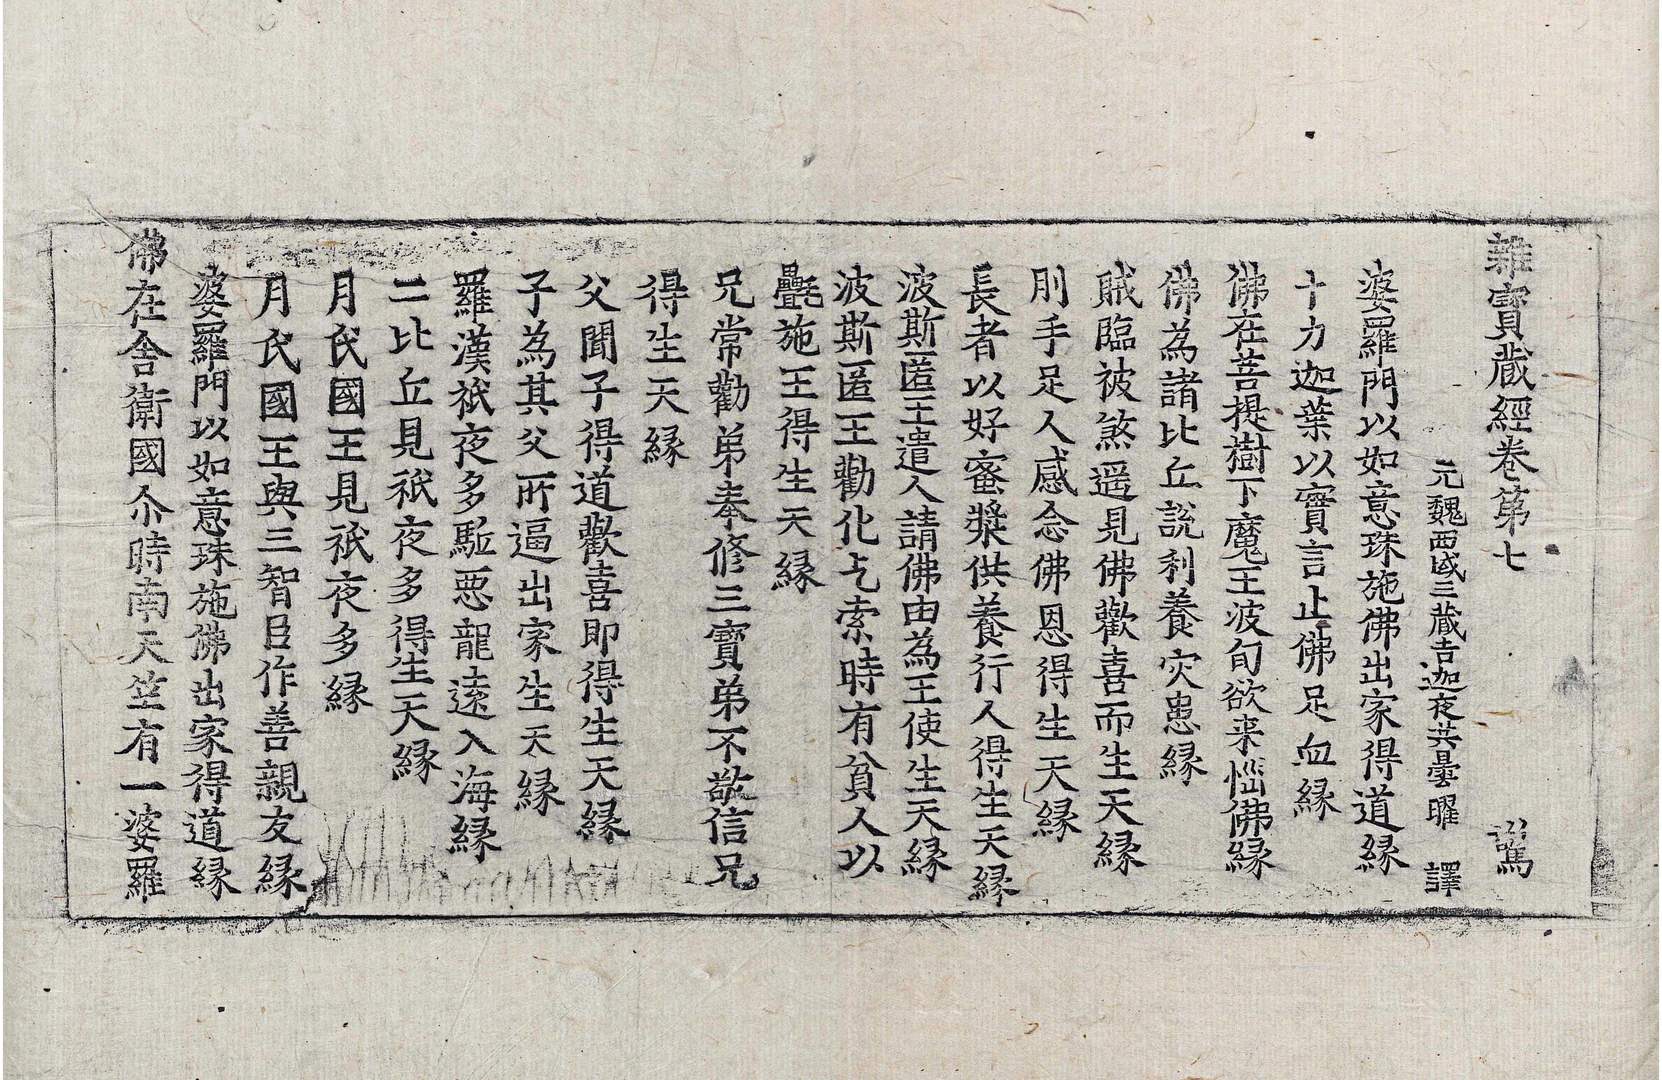 雜寶藏經卷第七 篤
元魏西域三藏吉迦夜共曇曜 譯
婆羅門以如意珠施佛出家得道緣
十力迦葉以實言止佛足血緣
佛在菩提樹下魔王波旬欲来惱佛緣
佛為諸比丘說利養灾患緣
賊臨被煞遥見佛歡喜而生天緣
刖手足人感念佛恩得生天緣
長者以好蜜漿供養行人得生天緣
波斯匿王遣人請佛由為王使生天緣
波斯匿王勸化乞索時有貧人以
㲲施王得生天緣
兄常勸弟奉修三寶弟不敬信兄
得生天緣
父聞子得道歡喜即得生天緣
子為其父所逼出家生天緣
羅漢祇夜多駈惡龍遠入海緣
二比丘見祇夜多得生天緣
月氏國王見祇夜多緣
月氏國王與三智臣作善親友緣
婆羅門以如意珠施佛出家得道緣
佛在舍衛國尒時南天竺有一婆羅